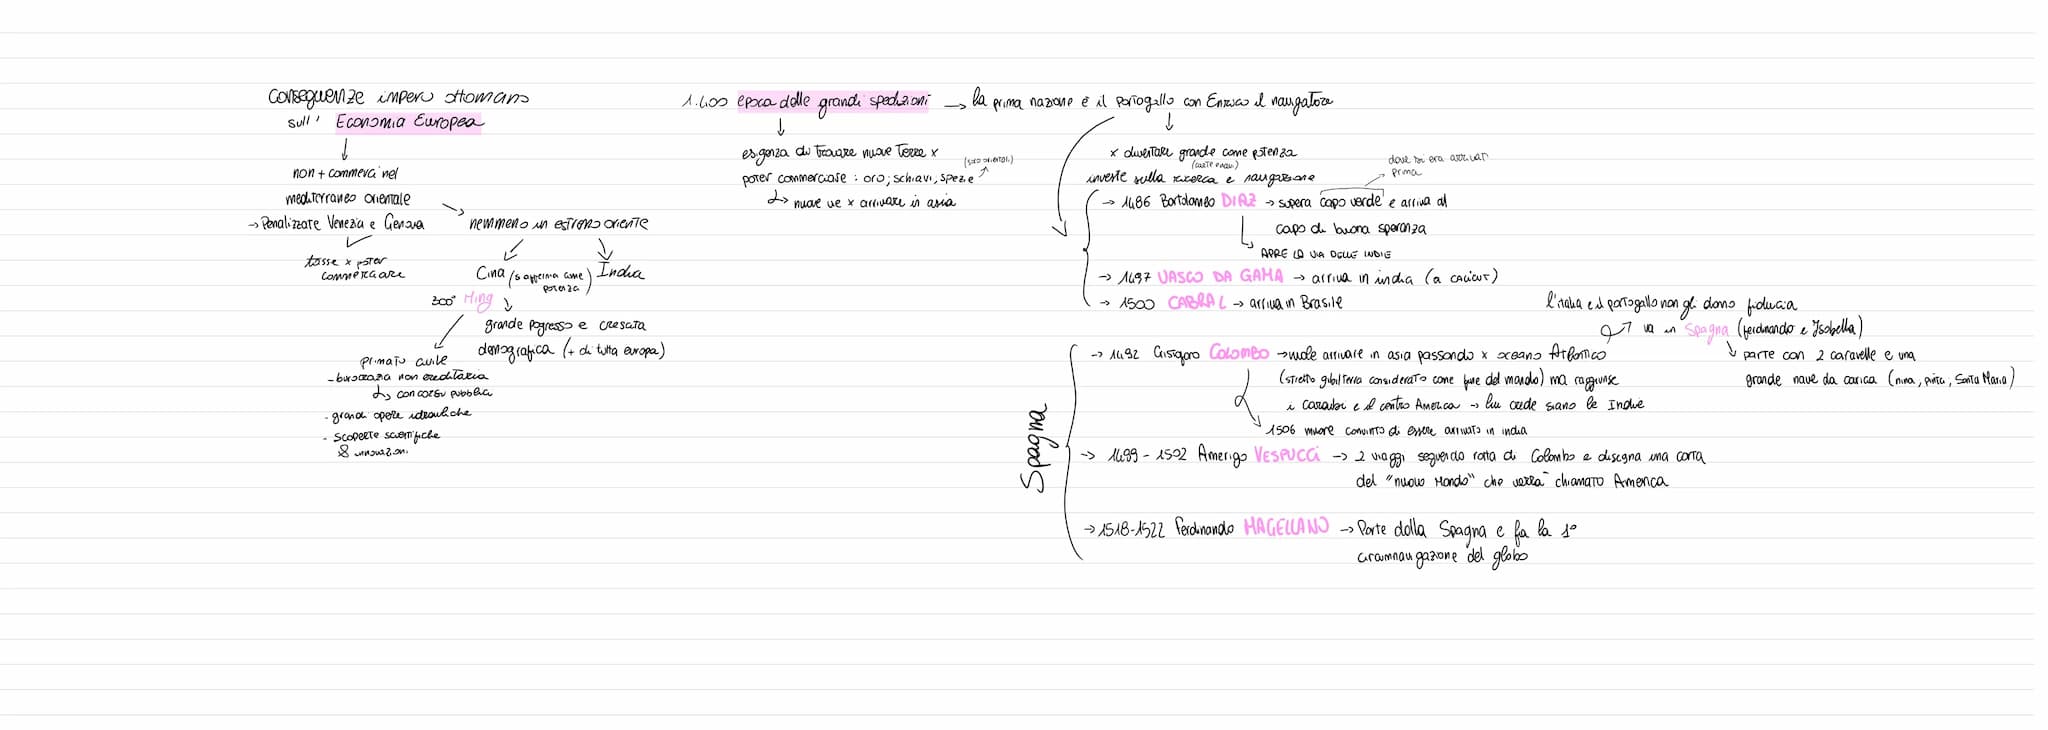 conseguenze impero ottomano
sull' Economia Europea
non + commerci nel
mediterraneo orientale
→ Penalizzate Venezia e Genova
tasse x poter
commerciare
nemmeno in estremo oriente
Cina (si afferma come
potenza)
India
300° Ming
grande pogresso e crescita
demografica (+ di tutta europa)
primato civile
- burocrazia non ereditaria
↳ concorsi pubblici
- grandi opere idrauliche
- scoperte scientifiche
& innovazioni
1.400 epoca delle grandi spedizioni → la prima nazione è il portogallo con Enrico il navigatore
esigenza di trovare nuove terre x
poter commerciare : oro, schiavi, spezie
(solo orientali)
↳ nuove vie x arrivare in asia
x diventare grande come potenza
investe sulla ricerca e navigazione
(carte e navi)
dove si era arrivati
prima
→ 1486 Bartolomeo DIAZ → supera capo verde e arriva al
capo di buona speranza
APRE LA VIA DELLE INDIE
→ 1497 VASCO DA GAMA → arriva in india (a CALICUT)
→ 1500 CABRAL → arriva in Brasile
Spagna
l'italia e il portogallo non gli danno fiducia
va in Spagna (ferdinando e Isabella)
parte con 2 caravelle e una
grande nave da carica (nina, pinta, Santa Maria)
→ 1492 Cristoforo COLOMBO → vuole arrivare in asia passando x oceano Atlantico
(stretto gibilterra considerato come fine del mondo) ma raggiunse
i caraibi e il centro America → lui crede siano le Indie
1506 muore convinto di essere arrivato in india
→ 1499 - 1502 Amerigo VESPUCCI → 2 viaggi seguendo rotta di Colombo e disegna una carta
del "nuovo mondo" che verrà chiamato America
→ 1518-1522 Ferdinando MAGELLANO → Parte dalla Spagna e fa la 1°
circumnavigazione del globo